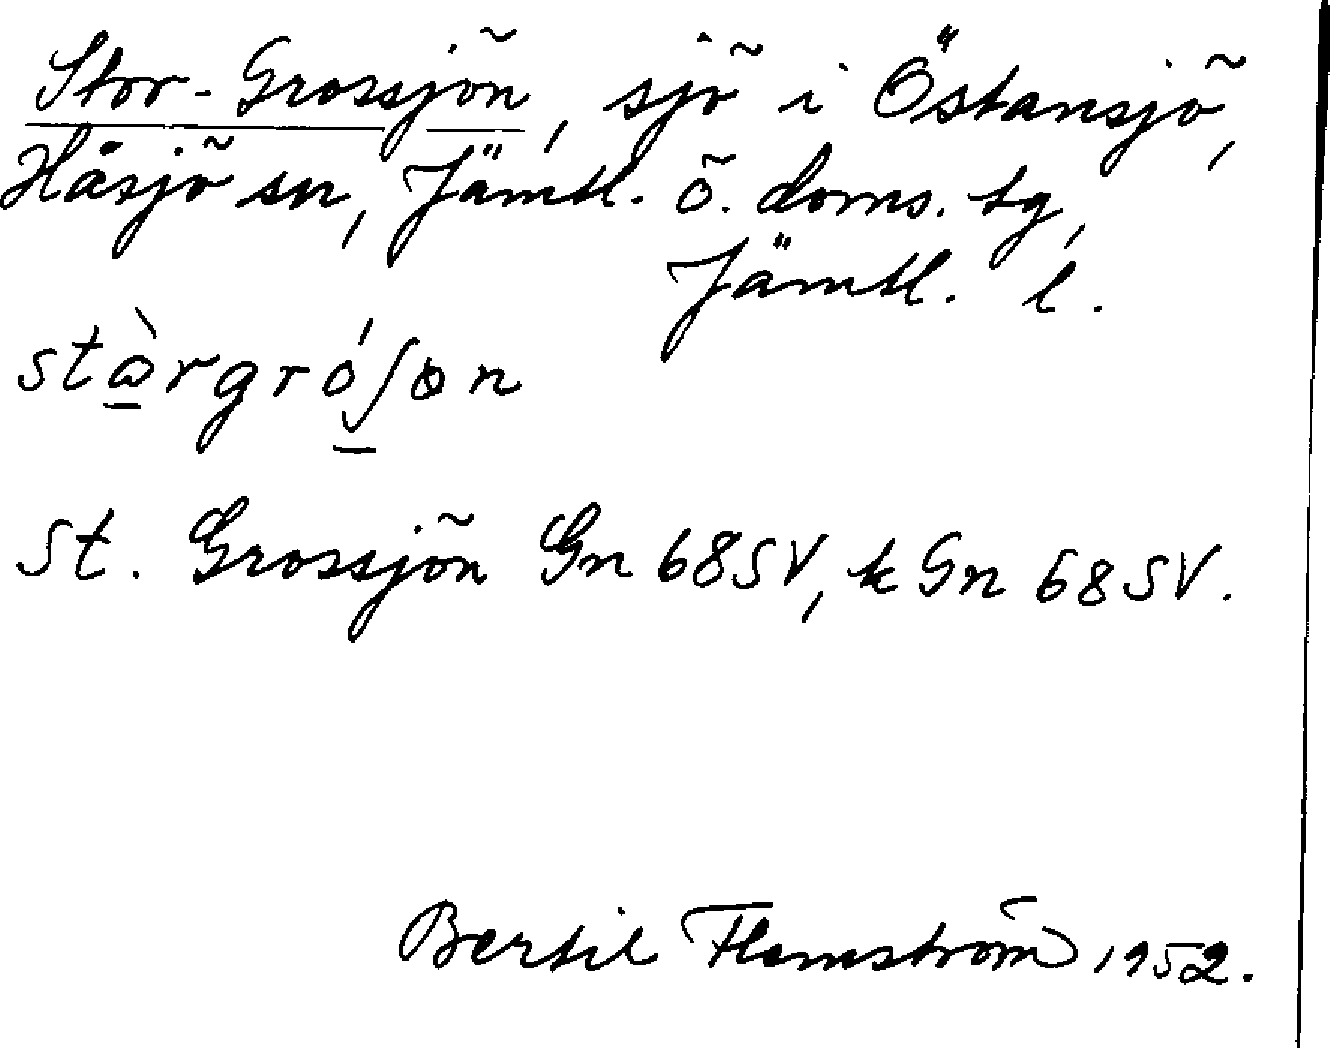 Stor-Grossjön, sjö i Östansjö,
Håsjö sn, Jämtl. ö. doms. tg,
Jämtl. l.
stɷ̀rgróʃɵn
St. Grossjön Gn 68SV, k Gn 68SV.
Bertil Flemström 1952.